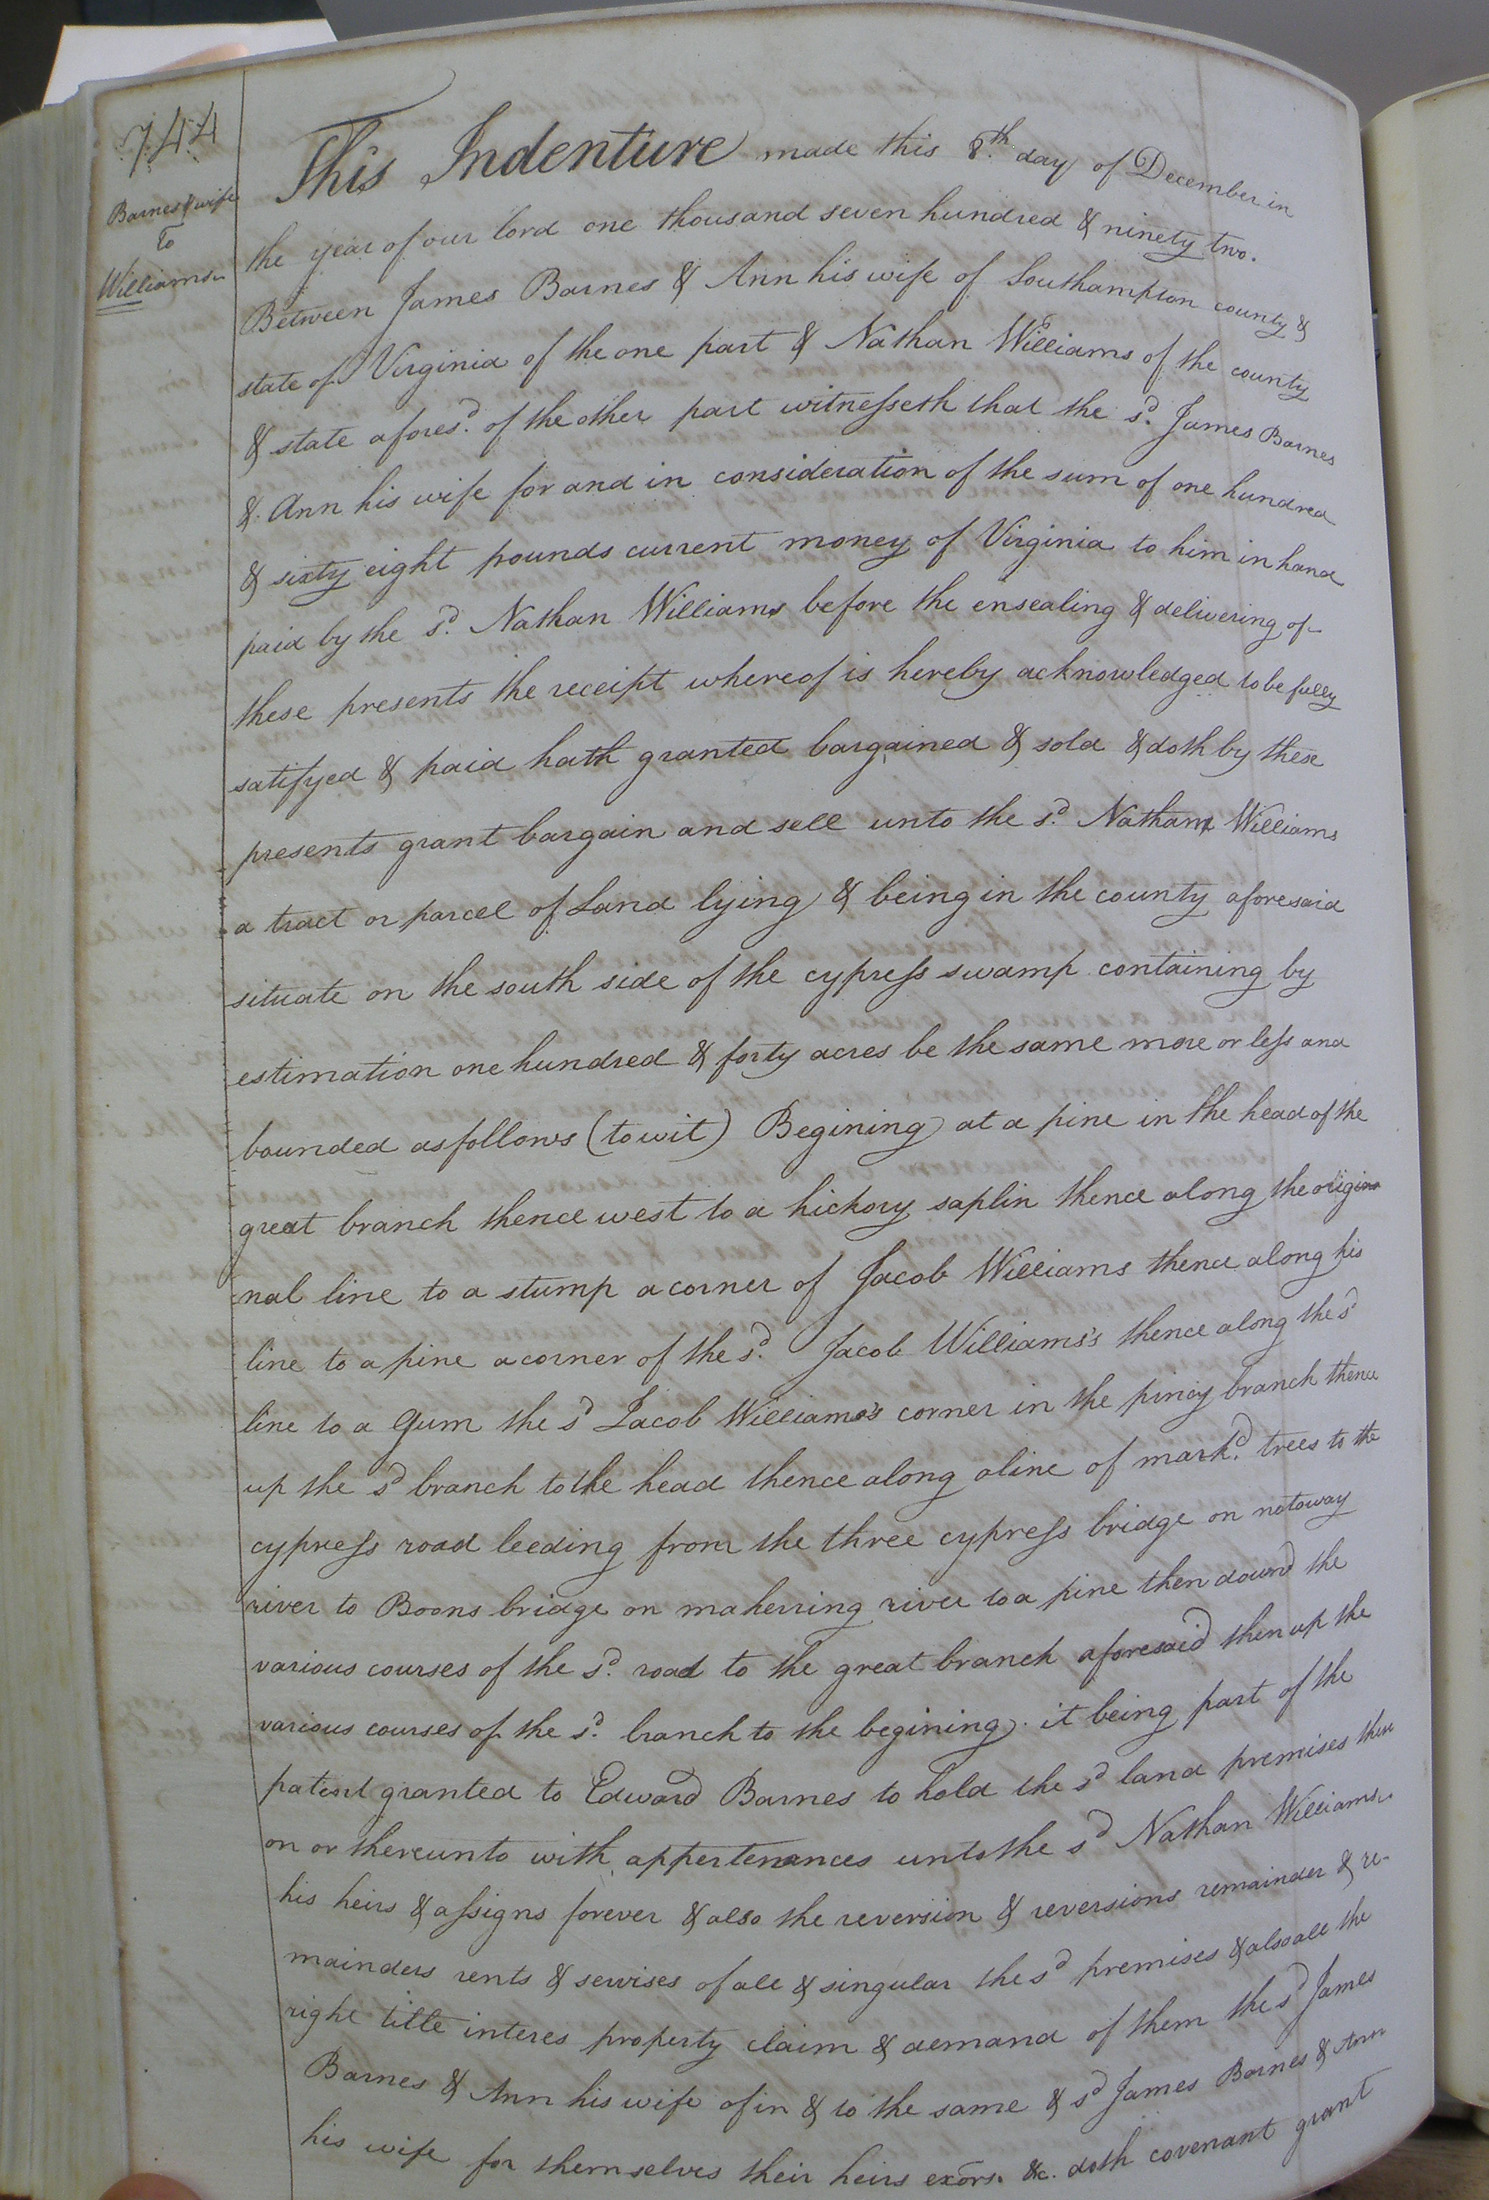 744
Barnes & wife
To
Williams
This Indenture made this 8.th day of December in
the year of our lord one thousand seven hundred & ninety two.
Between James Barnes & Ann his wife of Southampton county &
state of Virginia of the one part & Nathan Williams of the county
& state afores.d of the other part witnesseth that the s.d James Barnes
& Ann his wife for and in consideration of the sum of one hundred
& sixty eight pounds current money of Virginia to him in hand
paid by the s.d Nathan Williams before the ensealing & delivering of
these presents the receipt whereof is hereby acknowledged to be fully
satifyed & paid hath granted bargained & sold & doth by these
presents grant bargain and sell unto the s.d Nathan Williams
a tract or parcel of Land lying & being in the county aforesaid
situate on the south side of the cypress swamp containing by
estimation one hundred & forty acres be the same more or less and
bounded as follows (to wit) Begining at a pine in the head of the
great branch thence west to a hickory saplin thence along the origi
nal line to a stump a corner of Jacob Williams thence along his
line to a pine a corner of the s.d Jacob Williams's thence along the sd
line to a Gum the sd Jacob Williams's corner in the piney branch thence
up the sd branch to the head thence along a line of mark.d trees to the
cypress road leeding from the three cypress bridge on notoway
river to Boons bridge on maherring river to a pine then down the
various courses of the s.d road to the great branch aforesaid then up the
various courses of the s.d branch to the begining. it being part of the
patent granted to Edward Barnes to hold the sd land premises there
on or thereunto with appertenances unto the sd Nathan Williams
his heirs & assigns forever & also the reversion & reversions remainder & re-
mainders rents & servises of all & singular the sd premises & also all the
right title interes property claim & demand of them the sd James
Barnes & Ann his wife of in & to the same & sd James Barnes & Ann
his wife for themselves their heirs exors. &c. doth covenant grant